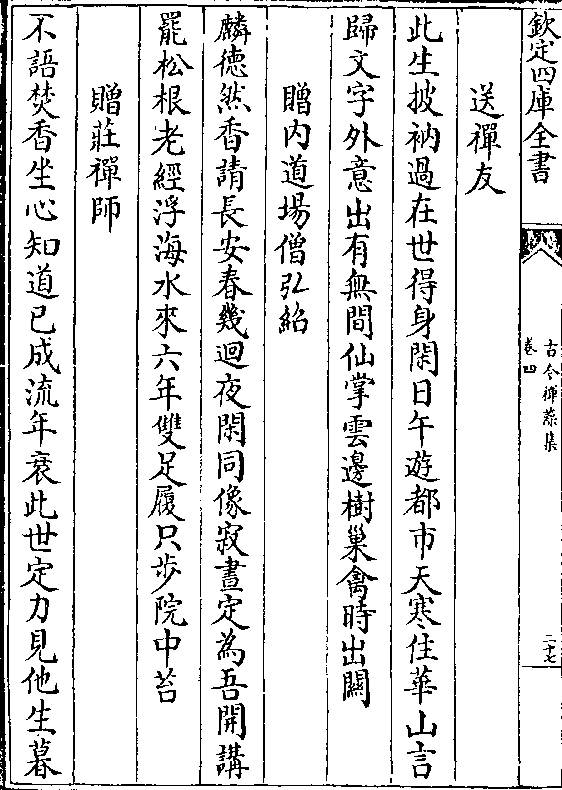 欽定四庫全書
古今禪藻集
卷四
二十七
送禪友
此生披衲過在世得身閑日午遊都市天寒住華山言
歸文字外意出有無間仙掌雲邊樹巢禽時出關
贈内道場僧弘紹
麟德然香請長安春幾迴夜閑同像寂晝定為吾開講
罷松根老經浮海水來六年雙足履只步院中苔
贈莊禪師
不語焚香坐心知道已成流年衰此世定力見他生暮